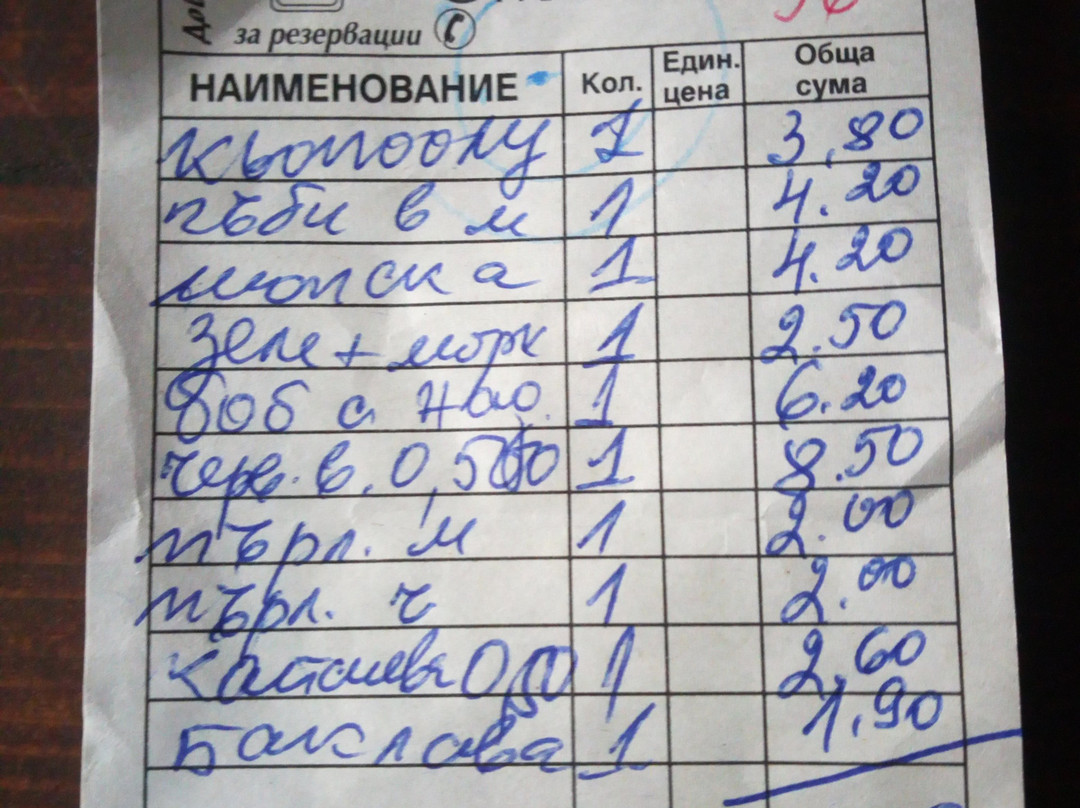 за резервации
НАИМЕНОВАНИЕ Кол. Един. цена Обща сума
Кьопоолу 1 3,80
гъби в м 1 4.20
шопска 1 4.20
зеле + морк 1 2.50
боб с 1 6.20
черв. в. 0,500 1 8.50
пърл. м 1 2.00
пърл. ч 1 2.00
1 2,60
Баклава 1 1,90